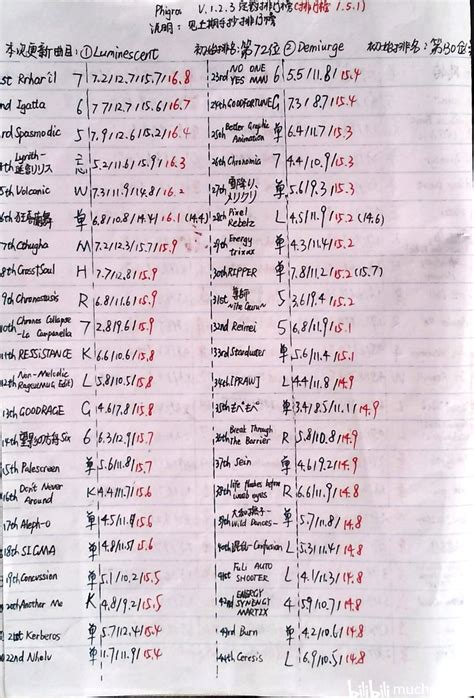 Phigros V.1.2.3 定数排行榜(排行榜 1.5.1)
说明:见上期手抄排行榜
本次更新曲目:①Luminescent 初始排名:第72位 ②Demiurge 初始排名:第130位
1st Rrhar'il 7 7.2/12.7/15.7/16.8
2nd Igallta 6 7.7/12.7/15.6/16.7
3rd Spasmodic 5 7.9/12.6/15.2/16.4
4th Lyrith- 5.2/11.6/15.9/16.3
5th Volcanic W 7.3/11.9/14.8/16.2
6th 狂喜蘭舞 单 6.8/10.8/14.4/16.1 (14.4)
7th Cthugha M 7.2/12.3/15.7/15.9
8th Cross†Soul H 7.7/12.8/15.9
9th Chronostasis R 6.8/11.6/15.9
10th Chronos Collapse -La Campanella 7 2.8/9.6/15.9
11th RESSISTANCE K 6.6/10.6/15.8
12th Non-Melodic Ragez(MUG Edit) L 5.8/10.5/15.8
13th GOODRAGE G 4.6/7.8/15.8
14th 望影の方舟Six 6 6.3/12.9/15.7
15th Palescreen 单 5.6/11.8/15.7
16th Don't Never Around K 4.4/11.7/15.6
17th Aleph-0 单 4.5/11.9/15.6
18th SIGMA 单 4.8/11.5/15.6
19th Concussion 单 5.1/10.2/15.5
20th Another Me K 4.8/9.2/15.5
21st Kerberos 单 5.7/12.4/15.4
22nd Nhelv 单 11.7/11.9/15.4
23rd NO ONE YES MAN 6 5.5/11.8/15.4
24th GOODFORTUNE G 7.3/8.7/15.4
25th Better Graphic Animation 单 6.4/11.7/15.3
26th Chronomia 7 4.4/10.9/15.3
27th 雪降り、メリクリ 单 5.6/9.3/15.3
28th Pixel Rebelz L 4.5/11.9/15.2 (14.6)
29th Energy trixxx 单 4.3/11.4/15.2
30th RIPPER 单 7.8/11.2/15.2(15.7)
31st 5 3.6/9.4/15.2
32nd Reimei 5 6.8/11.9/15.1
33rd Stardust 单 5.6/11.4/15.1
34th [PRAW] L 4.4/11.8/14.9
35th もぺもぺ 单 3.4/8.5/11.1/14.9
36th Break Through The Barrier R 5.8/10.8/14.9
37th Sein 单 4.6/9.2/14.9
38th life flashes before weeb eyes R 6.6/11.9/14.8
39th 大和撫子 -Wild Dances- 单 5.7/11.8/14.8
40th 混乱-Confusion L 5.3/11.4/14.8
41st FULi AUTO SHOOTER L 4.1/12.3/14.8
42nd ENERGY SYNERGY MATRIX 4 5.9/10.7/14.8
43rd Burn 单 4.2/10.6/14.8
44th Ceresis L 6.9/10.5/14.8
bilibili